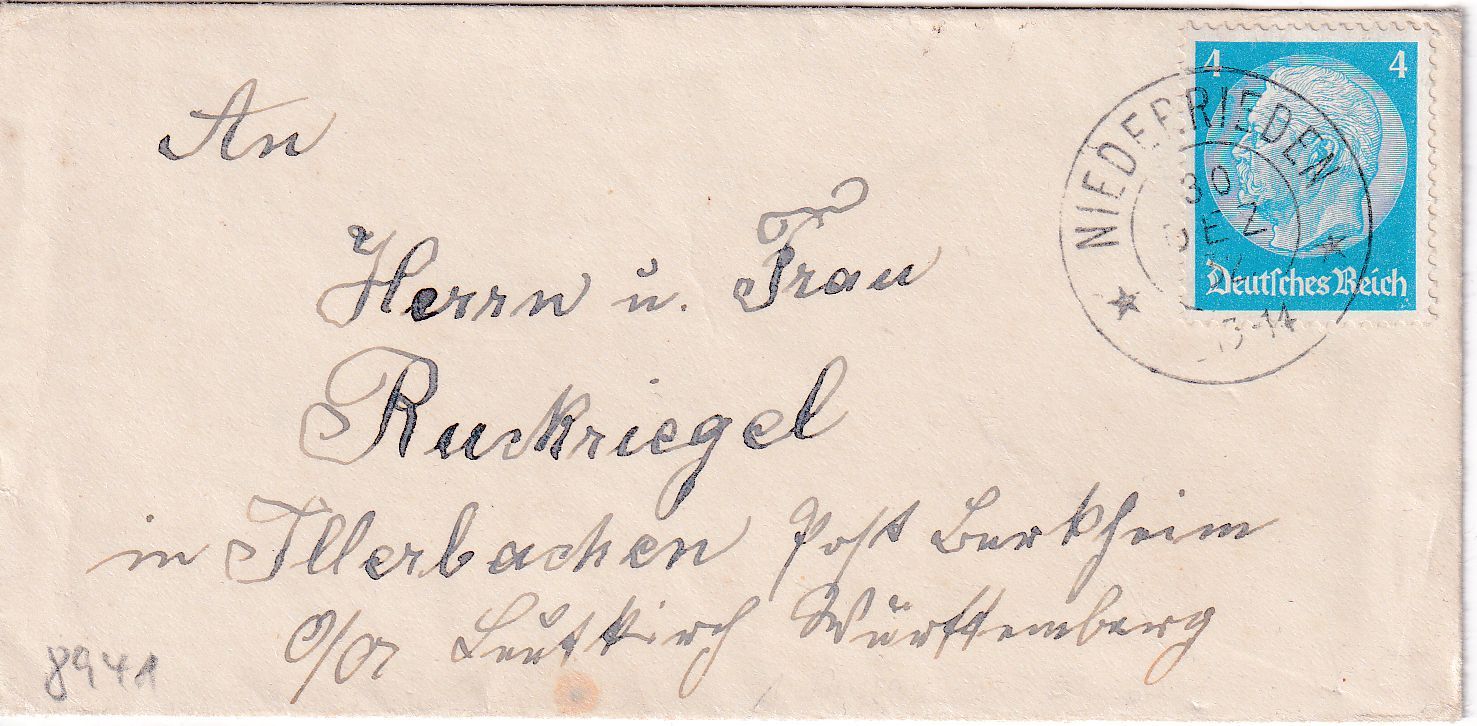 4 4
NIEDERRIEDEN
30
DEZ
13-14
Deutsches Reich
An
Herrn u. Frau
Ruckriegel
in Illerbachen Post Berkheim
O/A Leutkirch Württemberg
8941